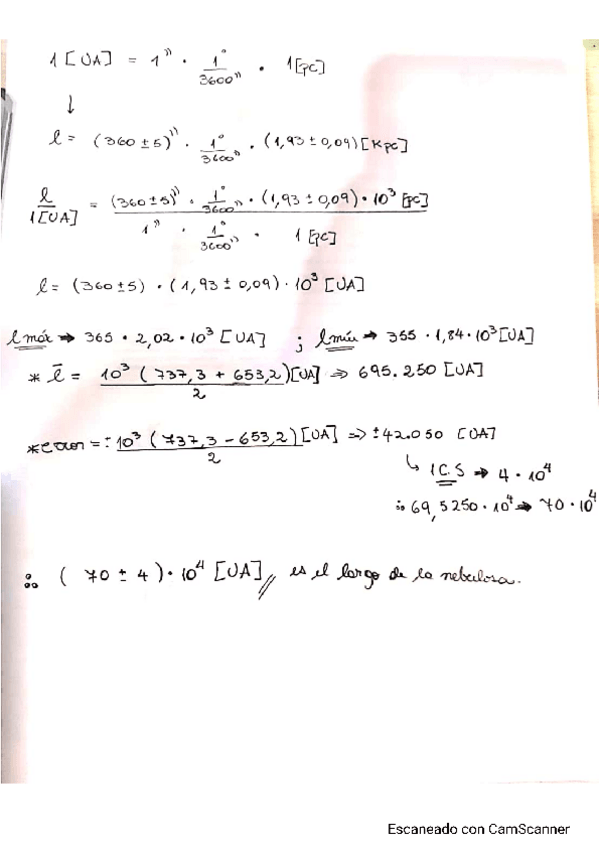 1 [UA] = 1'' · 1°/3600'' · 1[pc]
↓
l = (360 ± 5)'' · 1°/3600'' · (1,93 ± 0,09) [Kpc]
l/1[UA] = (360 ± 5)'' · 1°/3600'' · (1,93 ± 0,09) · 10³ [pc] / 1'' · 1°/3600'' · 1 [pc]
l = (360 ± 5) · (1,93 ± 0,09) · 10³ [UA]
l máx → 365 · 2,02 · 10³ [UA] ; l mín → 355 · 1,84 · 10³ [UA]
* l̄ = 10³ (737,3 + 653,2) [UA] / 2 ⇒ 695.250 [UA]
* error = ± 10³ (737,3 - 653,2) [UA] / 2 ⇒ ± 42.050 [UA]
↳ 1 C.S → 4 · 10⁴
∴ 69,5250 · 10⁴ → 70 · 10⁴
∴ (70 ± 4) · 10⁴ [UA] // es el largo de la nebulosa.
Escaneado con CamScanner